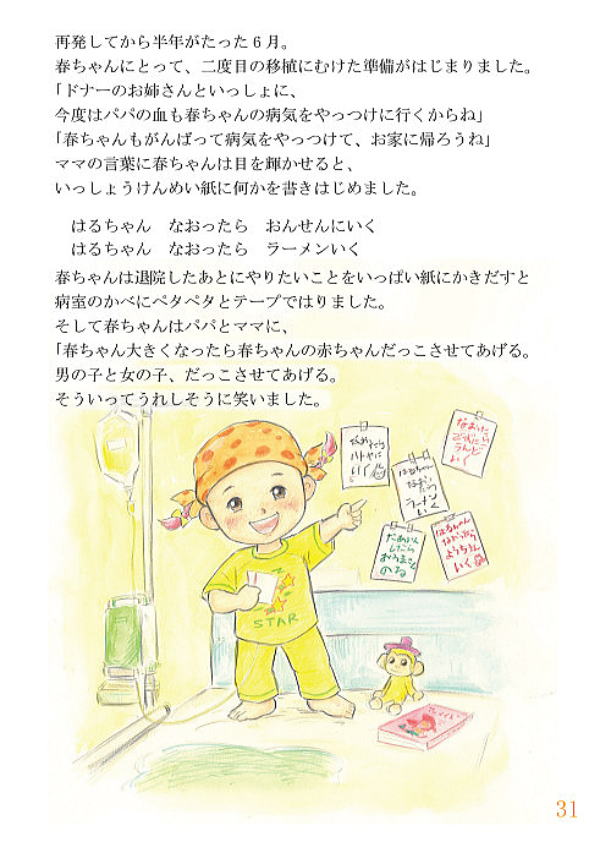 再発してから半年がたった6月。
春ちゃんにとって、二度目の移植にむけた準備がはじまりました。
「ドナーのお姉さんといっしょに、
今度はパパの血も春ちゃんの病気をやっつけに行くからね」
「春ちゃんもがんばって病気をやっつけて、お家に帰ろうね」
ママの言葉に春ちゃんは目を輝かせると、
いっしょうけんめい紙に何かを書きはじめました。
はるちゃん　なおったら　おんせんにいく
はるちゃん　なおったら　ラーメンいく
春ちゃんは退院したあとにやりたいことをいっぱい紙にかきだすと
病室のかべにペタペタとテープではりました。
そして春ちゃんはパパとママに、
「春ちゃん大きくなったら春ちゃんの赤ちゃんだっこさせてあげる。
男の子と女の子、だっこさせてあげる。
そういってうれしそうに笑いました。
ハトヤに
いく
なおったら
いく
はるちゃん
なおったら
ラーメン
いく
はるちゃん
なおったら
ようちえん
いく
たいいん
したら
のる
STAR
31